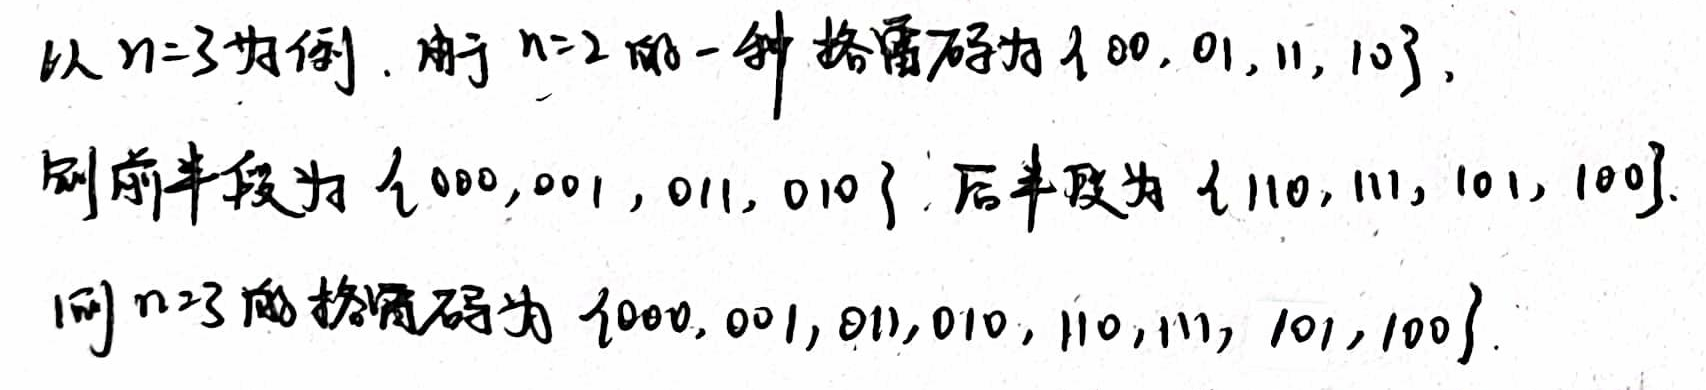 以 n=3 为例. 由于 n=2 的一种格雷码为 {00, 01, 11, 10},
则前半段为 {000, 001, 011, 010}; 后半段为 {110, 111, 101, 100}.
则 n=3 的格雷码为 {000, 001, 011, 010, 110, 111, 101, 100}.